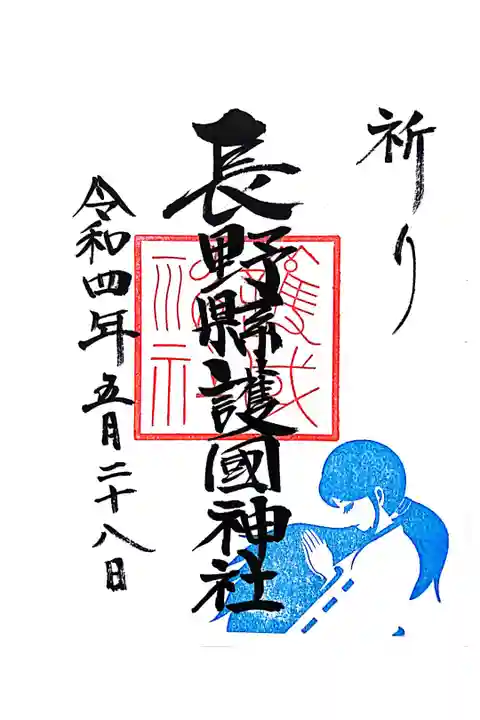 祈り
長野縣護國神社
令和四年五月二十八日